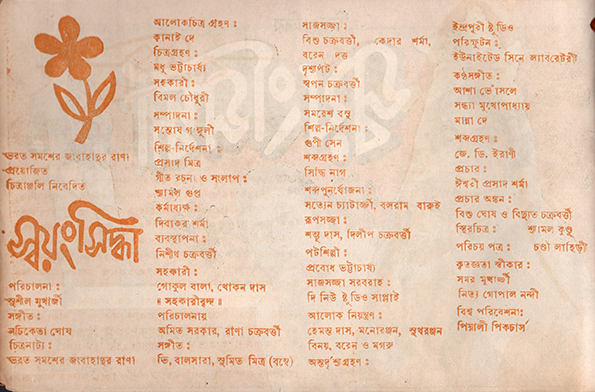 ভরত সমশের জংবাহাদুর রাণা
প্রযোজিত
চিত্রাঞ্জলি নিবেদিত
স্বয়ংসিদ্ধা
পরিচালনা :
সুশীল মুখার্জী
সঙ্গীত :
নচিকেতা ঘোষ
চিত্রনাট্য :
ভরত সমশের জংবাহাদুর রাণা
আলোকচিত্র গ্রহণ :
কানাই দে
চিত্রগ্রহণ :
মধু ভট্টাচার্য্য
সহকারী :
বিমল চৌধুরী
সম্পাদনা :
সন্তোষ গাঙ্গুলী
শিল্প-নির্দেশনা :
প্রসাদ মিত্র
গীত রচনা ও সংলাপ :
শ্যামল গুপ্ত
কর্মাধ্যক্ষ :
দিবাকর শর্মা
ব্যবস্থাপনা :
নিশীথ চক্রবর্ত্তী
সহকারী :
গোকুল বালা, খোকন দাস
॥ সহকারীবৃন্দ ॥
পরিচালনায়
অমিত সরকার, রাণা চক্রবর্ত্তী
সঙ্গীত :
ভি, বালসারা, সুমিত মিত্র (বম্বে)
সাজসজ্জা :
বিশু চক্রবর্ত্তী, কেদার শর্মা,
বরেন দত্ত
দৃশ্যপট :
স্বপন চক্রবর্ত্তী
সম্পাদনা :
সমরেশ বসু
শিল্প-নির্দেশনা :
গুপী সেন
শব্দগ্রহণ :
সিদ্ধি নাগ
শব্দপুনর্যোজনা :
সত্যেন চ্যাটার্জ্জী, বলরাম বারুই
রূপসজ্জা :
শম্ভু দাস, দিলীপ চক্রবর্ত্তী
পটশিল্পী :
প্রবোধ ভট্টাচার্য্য
সাজসজ্জা সরবরাহ :
দি নিউ ষ্টুডিও সাপ্লাই
আলোক নিয়ন্ত্রণ :
হেমন্ত দাস, মনোরঞ্জন, সুখরঞ্জন
বিনয়, বরেন ও মগরু
অন্তর্দৃশ্যগ্রহণ :
ইন্দ্রপুরী ষ্টুডিও
পরিস্ফুটন :
ইউনাইটেড সিনে ল্যাবরেটরী
কণ্ঠসঙ্গীত :
আশা ভোঁসলে
সন্ধ্যা মুখোপাধ্যায়
মান্না দে
শব্দগ্রহণ :
জে. ডি. ইরাণী
প্রচার :
ঈশ্বরী প্রসাদ শর্মা
প্রচার অঙ্কন :
বিশু ঘোষ ও বিদ্যুত চক্রবর্ত্তী
স্থিরচিত্র : শ্যামল কুণ্ডু
পরিচয় পত্র : চণ্ডী লাহিড়ী
কৃতজ্ঞতা স্বীকার :
সমর মুখার্জ্জী
নিত্য গোপাল নন্দী
বিশ্ব পরিবেশনা :
পিয়ালী পিকচার্স